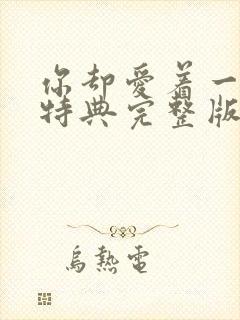 你却愛着一
特典完整版
烏熱電